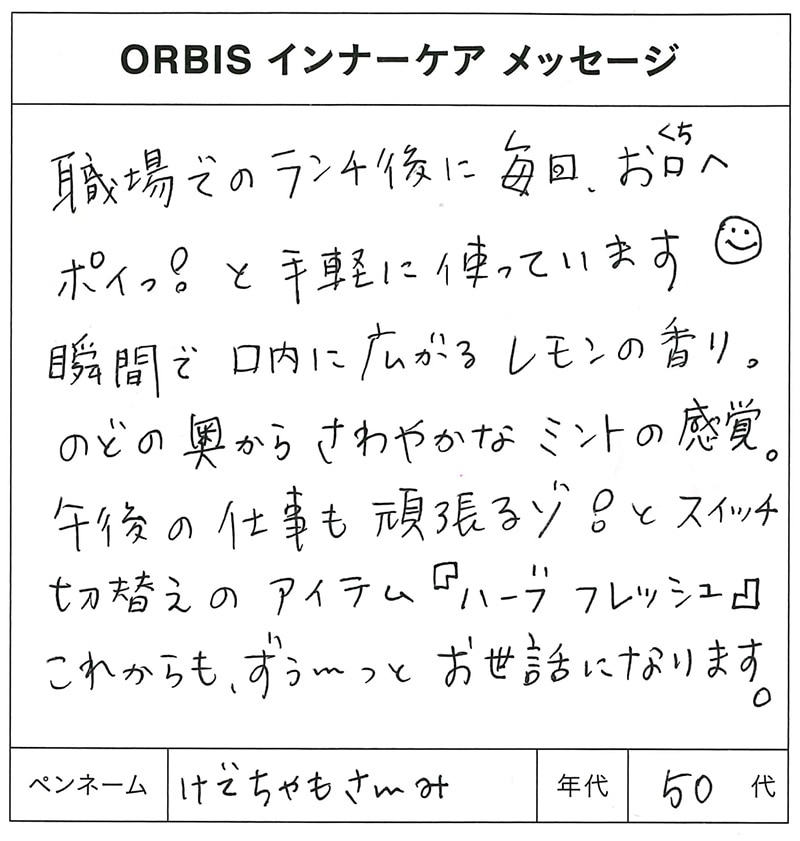 ORBIS インナーケア メッセージ
職場でのランチ後に毎回、お口へ
くち
ポイっ!と手軽に使っています
瞬間で口内に広がるレモンの香り。
のどの奥からさわやかなミントの感覚。
午後の仕事も頑張るゾ!とスイッチ
切替えのアイテム『ハーブフレッシュ』
これからも、ずぅ〜っとお世話になります。
ペンネーム
年代 50 代